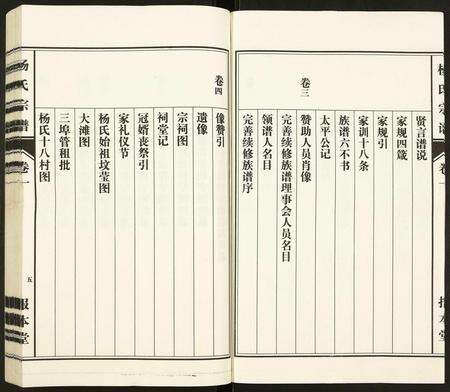 杨氏宗谱
卷一
报本堂
贤言谱说
家规四箴
家规引
家训十八条
族谱六不书
太平公记
卷三
赞助人员肖像
完善续修族谱理事会人员名目
领谱人名目
完善续修族谱序
卷四
像赞引
遗像
宗祠图
祠堂记
冠婿丧祭引
家礼仪节
杨氏始祖坟茔图
大滩图
三埠管租批
杨氏十八村图
杨氏宗谱
卷一
五
报本堂